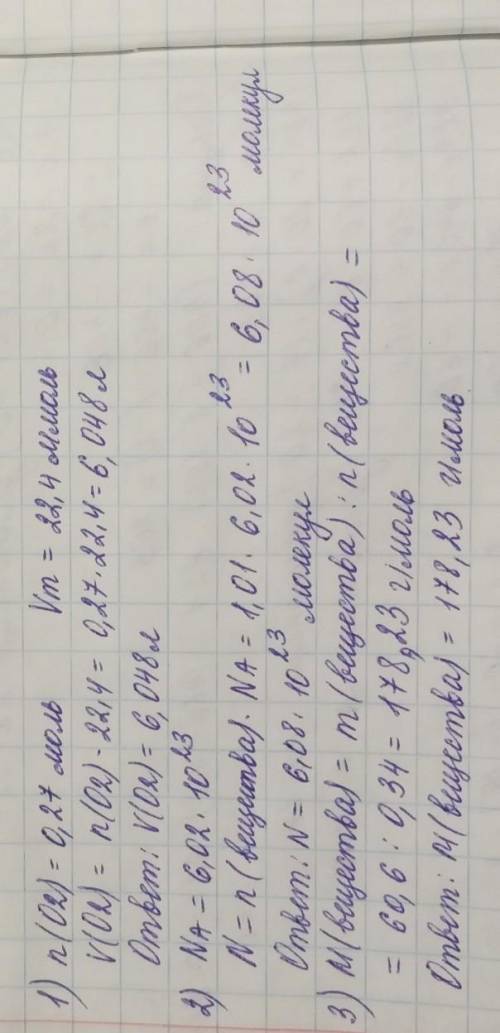 1) n(O2) = 0,27 моль Vm = 22,4 л/моль
V(O2) = n(O2) · 22,4 = 0,27 · 22,4 = 6,048 л
Ответ: V(O2) = 6,048 л
2) NA = 6,02 · 10²³
N = n (вещества) · NA = 1,01 · 6,02 · 10²³ = 6,08 · 10²³ молекул
Ответ: N = 6,08 · 10²³ молекул
3) M (вещества) = m (вещества) : n (вещества) =
= 60,6 : 0,34 = 178,23 г/моль
Ответ: M (вещества) = 178,23 г/моль